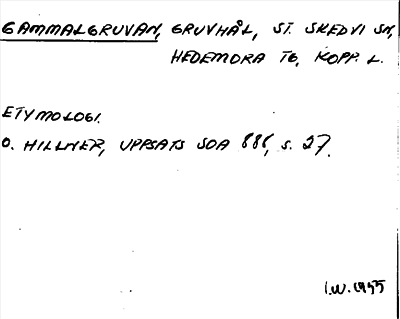 GAMMALGRUVAN, GRUVHÅL, ST. SKEDVI SN,
HEDEMORA TG, KOPP. L.
ETYMOLOGI.
O. HILLNER, UPPSATS SOA 886, S. 27.
I.W. 1955